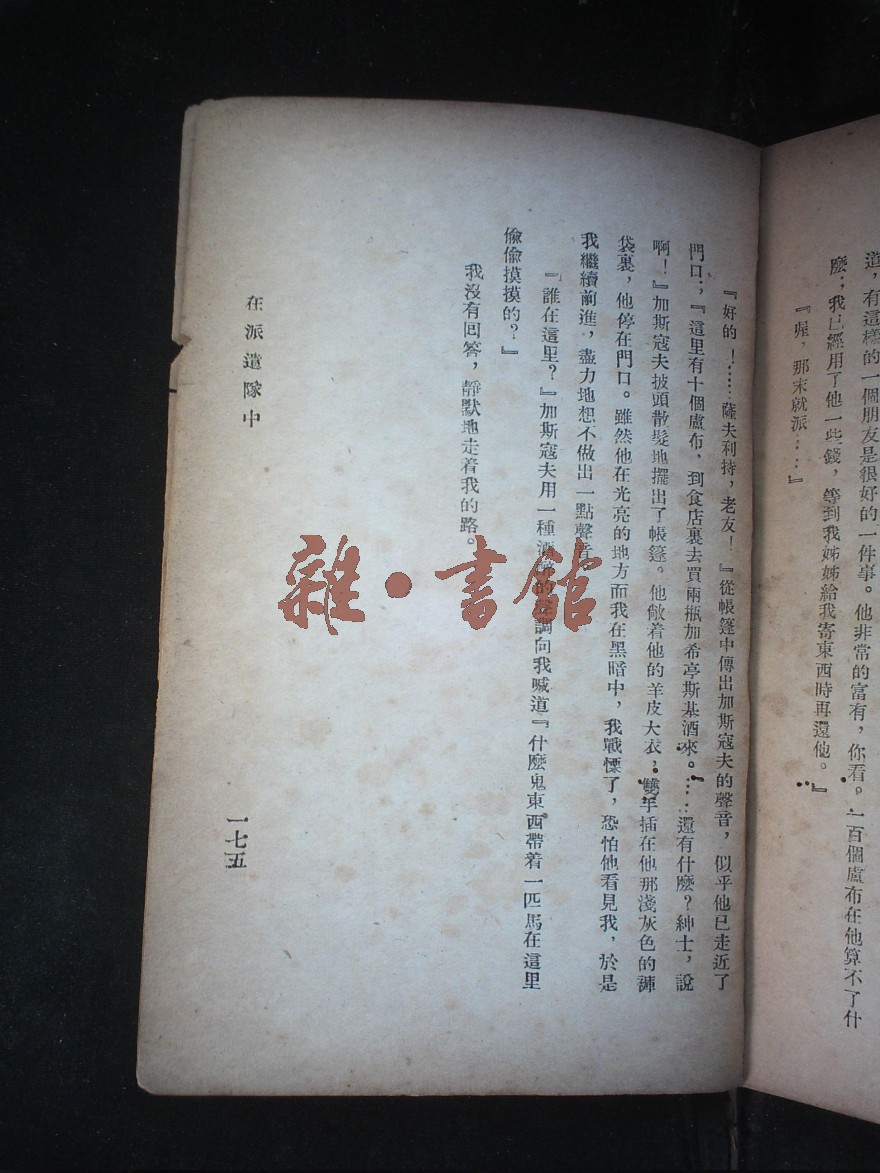 道，有這樣的一個朋友是很好的一件事。他非常的富有，你看。一百個盧布在他算不了什
麼；我已經用了他一些錢，等到我姊姊給我寄東西時再還他。』
『喔，那末就派……』
『好的！……薩夫利持，老友！』從帳篷中傳出加斯寇夫的聲音，似乎他已走近了
門口；『這里有十個盧布，到食店裏去買兩瓶加希亭斯基酒來。……還有什麼？紳士，說
啊！』加斯寇夫披頭散髮地擺出了帳篷。他敞着他的羊皮大衣，雙手插在他那淺灰色的褲
袋裏，他停在門口。雖然他在光亮的地方而我在黑暗中，我戰慄了，恐怕他看見我，於是
我繼續前進，盡力地想不做出一點聲音。
『誰在這里？』加斯寇夫用一種酒醉的 調向我喊道『什麼鬼東西帶着一匹馬在這里
偸偸摸摸的？』
我沒有回答，靜默地走着我的路。
在派遣隊中
一七五
雜·書館